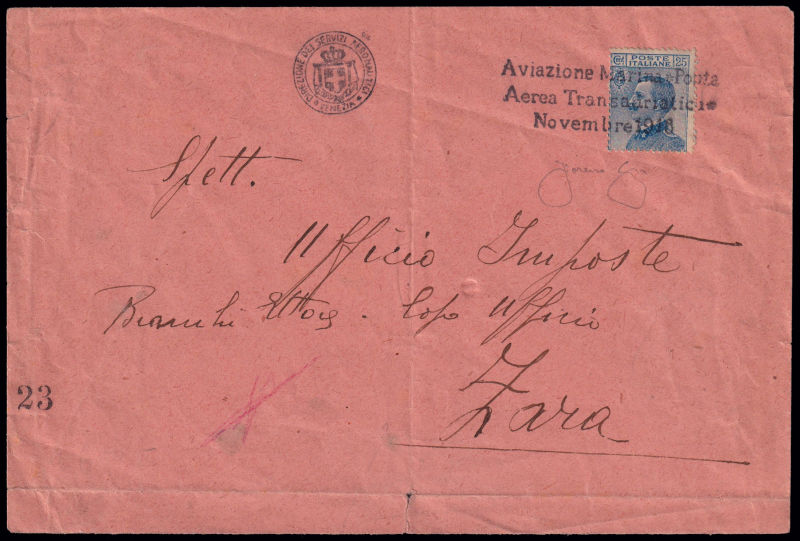 DIREZIONE DEI SERVIZI AERONAUTICI
VENEZIA
POSTE
ITALIANE
25
Aviazione Marina-Posta
Aerea Transadriatica
Novembre 1918
Spett.
Ufficio Imposte
Bianchi Ettore - Capo Ufficio
23
Zara